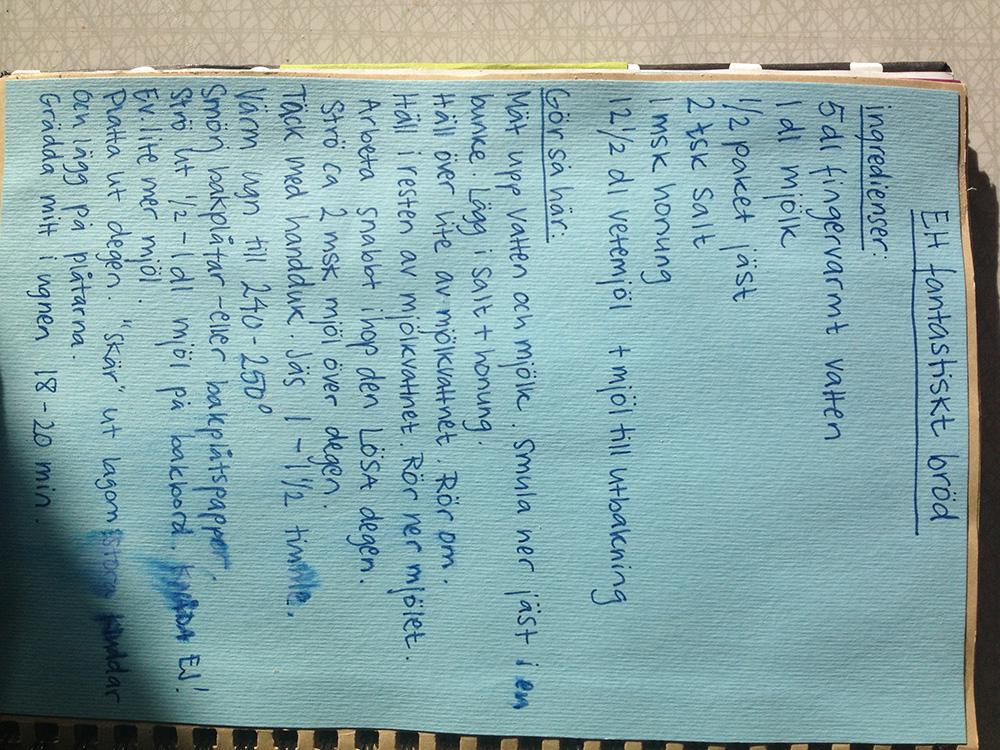 Ett fantastiskt bröd
ingredienser:
5 dl fingervarmt vatten
1 dl mjölk
1/2 paket jäst
2 tsk salt
1 msk honung
12 1/2 dl vetemjöl + mjöl till utbakning
Gör så här:
Mät upp vatten och mjölk. Smula ner jäst i en
bunke. Lägg i salt + honung.
Häll över lite av mjölkvattnet. Rör om.
Häll i resten av mjölkvattnet. Rör ner mjölet.
Arbeta snabbt ihop den LÖSA degen.
Strö ca 2 msk mjöl över degen.
Täck med handduk. Jäs 1 - 1 1/2 timme.
Värm ugn till 240 - 250°
Smörj bakplåtar - eller bakplåtspapper.
Strö ut 1/2 - 1 dl mjöl på bakbord. KNÅDA EJ!
Ev. lite mer mjöl.
Platta ut degen. "Skär" ut lagom stora kuddar
och lägg på plåtarna.
Grädda mitt i ugnen 18 - 20 min.